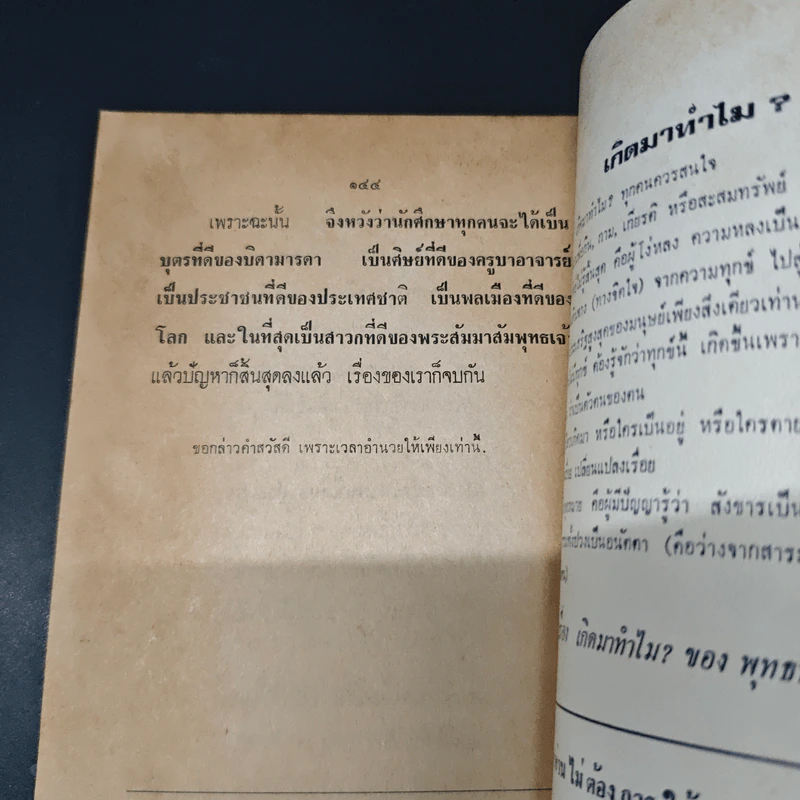 ๑๔๔
เพราะฉะนั้น จึงหวังว่านักศึกษาทุกคนจะได้เป็น
บุตรที่ดีของบิดามารดา เป็นศิษย์ที่ดีของครูบาอาจารย์
เป็นประชาชนที่ดีของประเทศชาติ เป็นพลเมืองที่ดีของ
โลก และในที่สุดเป็นสาวกที่ดีของพระสัมมาสัมพุทธเจ้า
แล้วปัญหาก็สิ้นสุดลงแล้ว เรื่องของเราก็จบกัน
ขอกล่าวคำสวัสดี เพราะเวลาอำนวยให้เพียงเท่านี้.
เกิดมาทำไม ?
ทุกคนควรสนใจ
กาม, เกียรติ หรือสะสมทรัพย์
คือผู้โง่หลง ความหลงเป็น
(ทางจิตใจ) จากความทุกข์ ไปสู่
สูงสุดของมนุษย์เพียงสิ่งเดียวเท่านั้น
ต้องรู้จักว่าทุกข์นี้ เกิดขึ้นเพราะ
เป็นตัวตนของตน
หรือใครเป็นอยู่ หรือใครตาย
เปลี่ยนแปลงเรื่อย
คือผู้มีปัญญารู้ว่า สังขารเป็น
เป็นอนัตตา (คือว่างจากสาระ
เกิดมาทำไม? ของ พุทธ
ท่านไม่ต้องการ